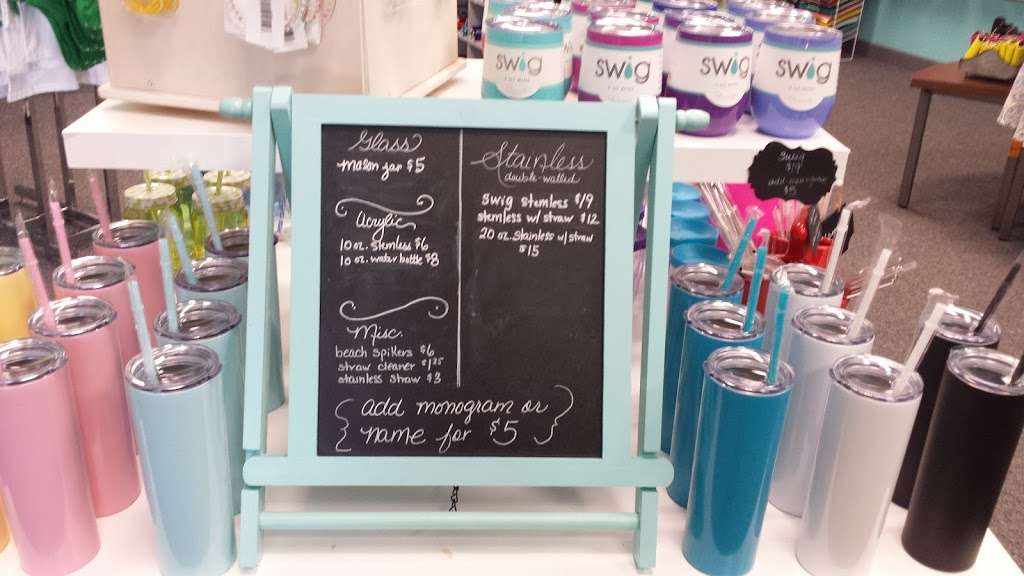 swig
swig
swig
swig
Glass
mason jar $5
Acrylic
10 oz. stemless $6
10 oz. water bottle $8
Misc.
beach spikers $6
straw cleaner $1.25
stainless straw $3
Stainless
double-walled
Swig stemless $19
stemless w/ straw $12
20 oz. stainless w/ straw
$15
{ add monogram or
name for $5 }
Swig
$19
$5